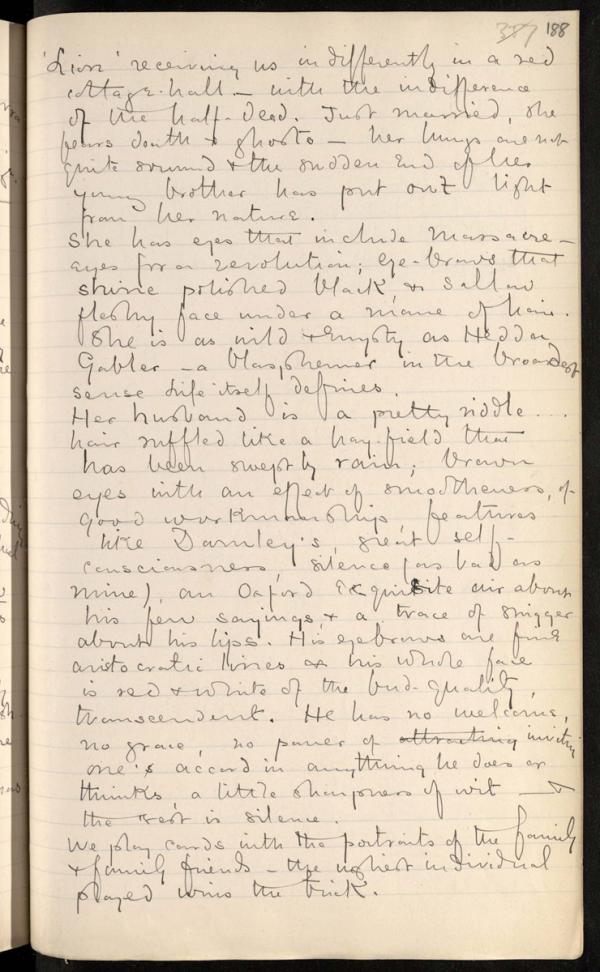 387 188
'Lion' receiving us indifferently in a red
cottage-hall – with the indifference
of the half-dead. Just married, she
fears death & ghosts – her lungs are not
quite sound & the sudden end of her
young brother has put out light
from her nature.
She has eyes that include massacre –
eyes for a revolution; eye-brows that
shine polished black, & sallow
fleshy face under a mane of hair.
She is as wild & empty as Hedda
Gabler – a blasphemer in the broadest
sense life itself defines.
Her husband is a pretty riddle ...
hair ruffled like a hay-field that
has been swept by rain; brown
eyes with an effect of smoothness, of
good workmanship, features
like Darnley's, great self-
consciousness, silence (as bad as
mine), an Oxford exquisite air about
his few sayings & a trace of snigger
about his lips. His eyebrows are fine
aristocratic lines & his whole face
is red & white of the bud-quality,
transcendent. He has no welcome,
no grace, no power of attracting inviting
one's accord in anything he does or
thinks, a little sharpness of wit – &
the rest is silence.
We play cards with the portraits of the family
& family friends – the ugliest individual
played wins the trick.